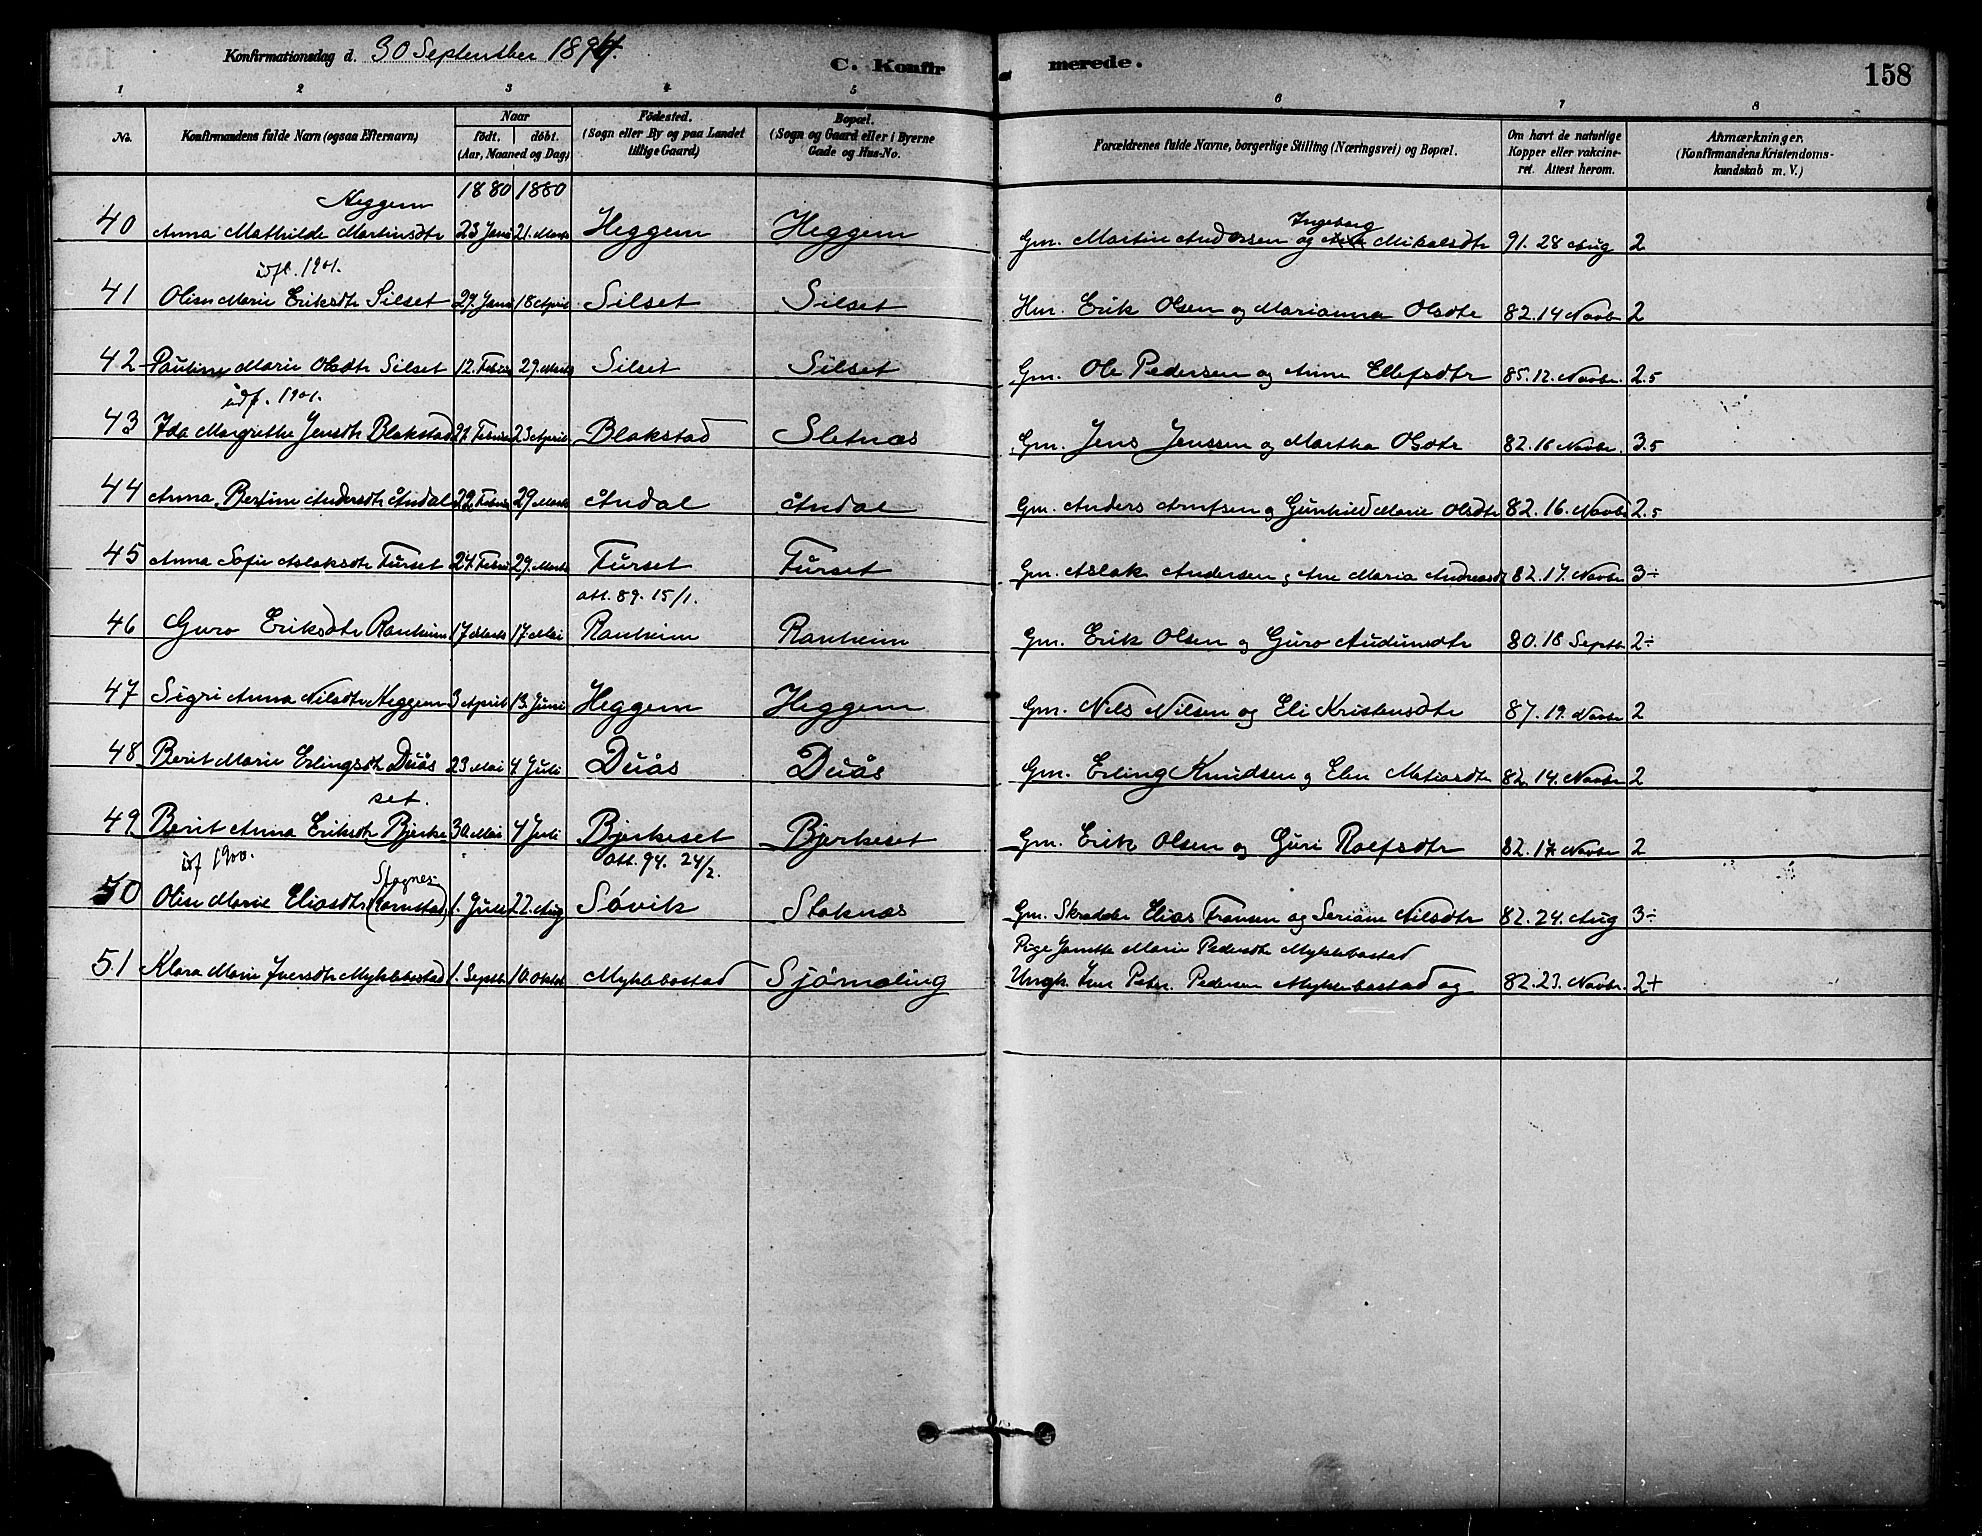 Konfirmationsdag d. 30 September 1894.
C. Konfirmerede.
158
1 2 3 4 5 6 7 8
No.
Konfirmandens fulde Navn (ogsaa Efternavn)
Naar
födt. döbt.
(Aar, Maaned og Dag)
Födested.
(Sogn eller By og paa Landet
tillige Gaard)
Bopæl.
(Sogn og Gaard eller i Byerne
Gade og Hus-No.
Forældrenes fulde Navne, borgerlige Stilling (Næringsvei) og Bopæl.
Om havt de naturlige
Kopper eller vakcine-
ret. Attest herom.
Anmærkninger.
(Konfirmandens Kristendoms-
kundskab m. V.)
Heggem 1880 1880
Ingeborg
40 Anna Mathilde Martinsdtr 23 Janu 21. Marts Heggem Heggem Gm. Martin Andersen og Mikalsdtr 91. 28 Aug 2
udfl. 1901.
41 Olise Marie Eriksdtr Silset 29 Janu 18 April Silset Silset Hm. Erik Olsen og Marianna Olsdtr 82. 14 Novbr 2
42 Pauline Marie Olsdtr Silset 12. Februar 29. Marts Silset Silset Gm. Ole Pedersen og Anne Ellefsdtr 85. 12. Novbr. 2.5
udf. 1901.
43 Ida Margrethe Jensdtr Blakstad 21. Februar 23 April Blakstad Sletnæs Gm. Jens Jenssen og Martha Olsdtr 82. 16 Novbr. 3.5
44 Anna Bertine Andersdtr Åndal 22. Februar 29 Marts Åndal Åndal Gm. Anders Arntsen og Gunhild Marie Olsdtr 82. 16. Novbr 2.5
45 Anna Sofie Aslaksdtr Furset 24. Febru 29. Marts Furset Furset Gm. Aslak Andersen og Ane Maria Andreasdtr 82. 17. Novbr 3÷
att. 89. 15/1.
46 Guro Eriksdtr Ranheim 17 Marts 17. Mai Ranheim Ranheim Gm. Erik Olsen og Guro Audunsdtr 80. 18 Septb 2÷
47 Sigri Anna Nilsdtr Heggem 3 April 13. Juni Heggem Heggem Gm. Nels Nilsen og Eli Kristensdtr 87. 19. Novbr 2
48 Berit Marie Erlingsdtr Duås 23 Mai 4 Juli Duås Duås Gm. Erling Knudsen og Elen Matiasdtr 82. 14. Novbr 2
set.
49 Berit Anna Eriksdtr Bjerke 30 Mai 4 Juli Bjerkeset Bjerkeset Gm. Erik Olsen og Guri Roelfsdtr 82. 17. Novbr 2
udf 1900. att. 94. 24/2.
50 Olise Marie Eliasdtr 1. Juli 22. Aug Søvik Staknæs Gm. Skrædder Elias Fransen og Seriane Nilsdtr 82. 24. Aug 3÷
Pige Janetta Marie Pedersdtr Myklebostad
51 Klara Marie Iversdtr Myklebostad 1. Septb 10. Oktob Myklebostad Sjømæling Ungk. Iver Peter Pedersen Myklebostad og 82. 23. Novbr. 2+